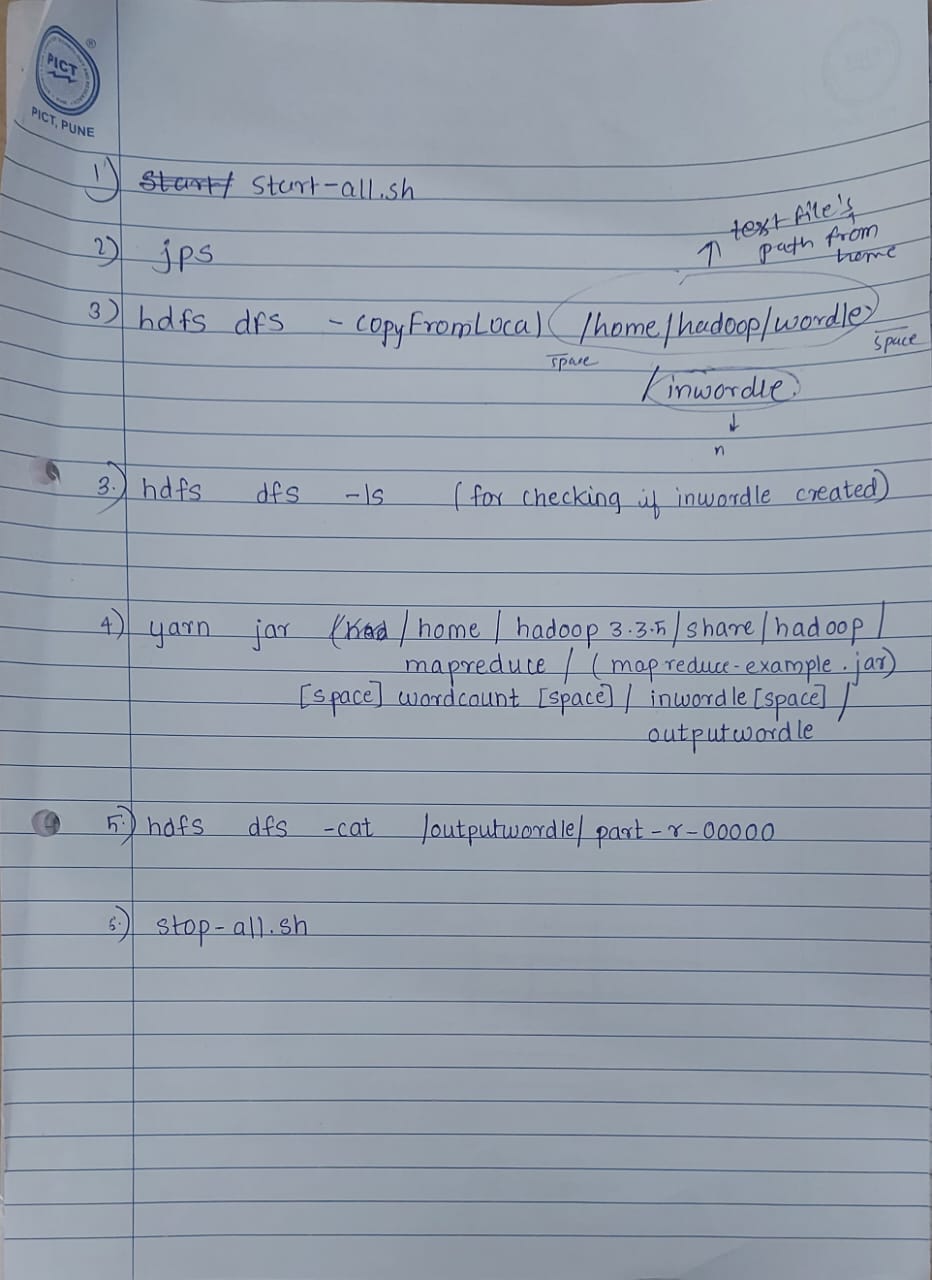 PICT
PICT, PUNE
1) start-all.sh
2) jps
↑ text file's
path from
home
3) hdfs dfs -copyFromLocal /home/hadoop/wordle
space space
/inwordle
↓
n
3.) hdfs dfs -ls (for checking if inwordle created)
4) yarn jar /home/hadoop 3.3.5/share/hadoop/
mapreduce/(mapreduce-example.jar)
[space] wordcount [space] / inwordle [space] /
outputwordle
5.) hdfs dfs -cat /outputwordle/part-r-00000
6.) stop-all.sh